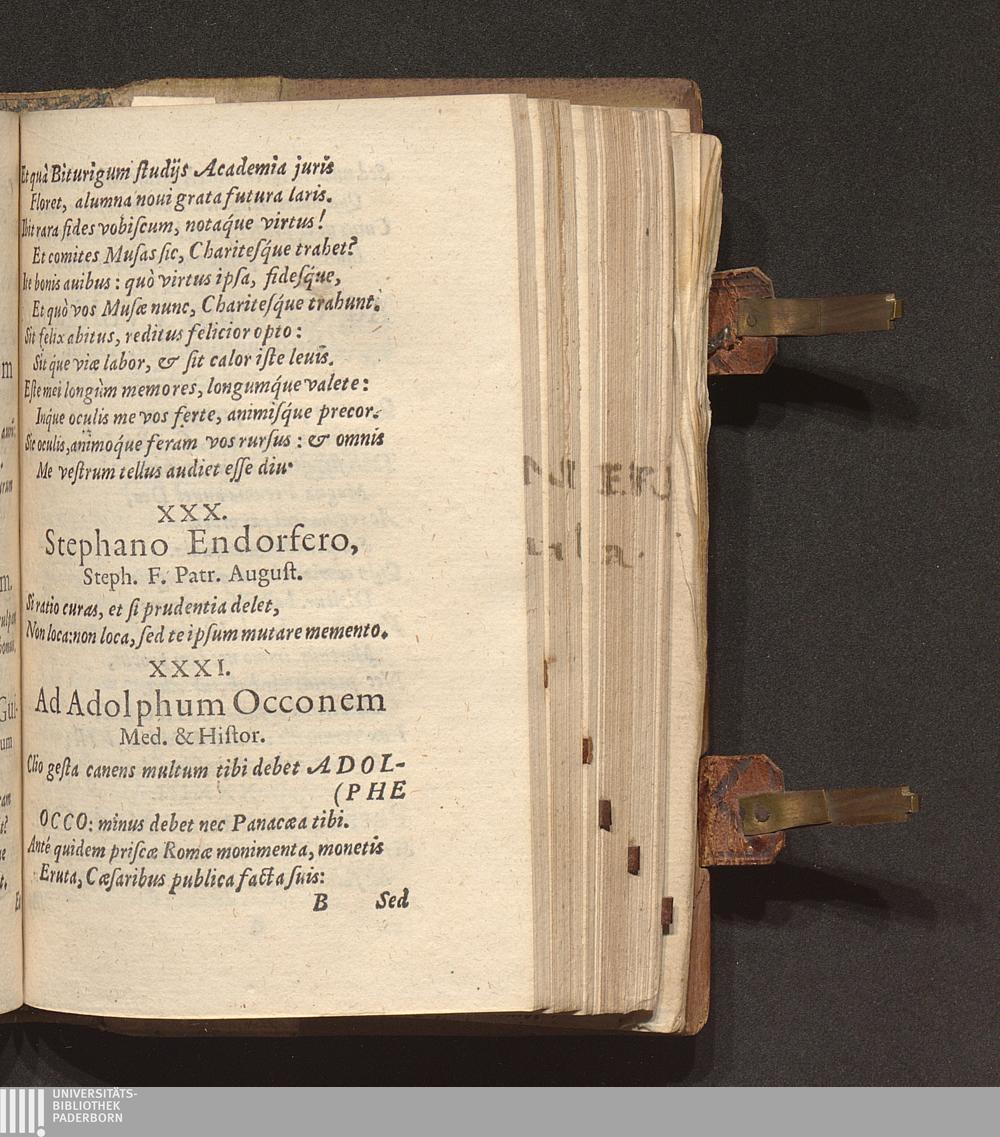 Et quà Biturigum ſtudijs Academia juris
Floret, alumna noui grata futura laris.
Ibit rara fides vobiſcum, notáque virtus!
Et comites Muſas ſic, Chariteſq́ue trahet?
Ite bonis auibus: quò virtus ipſa, fideſq́ue,
Et quò vos Muſæ nunc, Chariteſq́ue trahunt.
Sit felix abitus, reditus felicior opto:
Sit́que viæ labor, & ſit calor iſte leuis.
Eſte mei longùm memores, longumq́ue valete:
Inque oculis me vos ferte, animiſq́ue precor.
Sic oculis, animoq́ue feram vos rurſus: & omnis
Me veſtrum tellus audiet eſſe diu.
XXX.
Stephano Endorfero,
Steph. F. Patr. Auguſt.
Si ratio curas, et ſi prudentia delet,
Non loca: non loca, ſed te ipſum mutare memento.
XXXI.
Ad Adolphum Occonem
Med. & Hiſtor.
Clio geſta canens multum tibi debet ADOL-
(PHE
OCCO: minus debet nec Panacæa tibi.
Anté quidem priſcæ Romæ monimenta, monetis
Eruta, Cæſaribus publica facta ſuis:
B Sed
UNIVERSITÄTS-
BIBLIOTHEK
PADERBORN